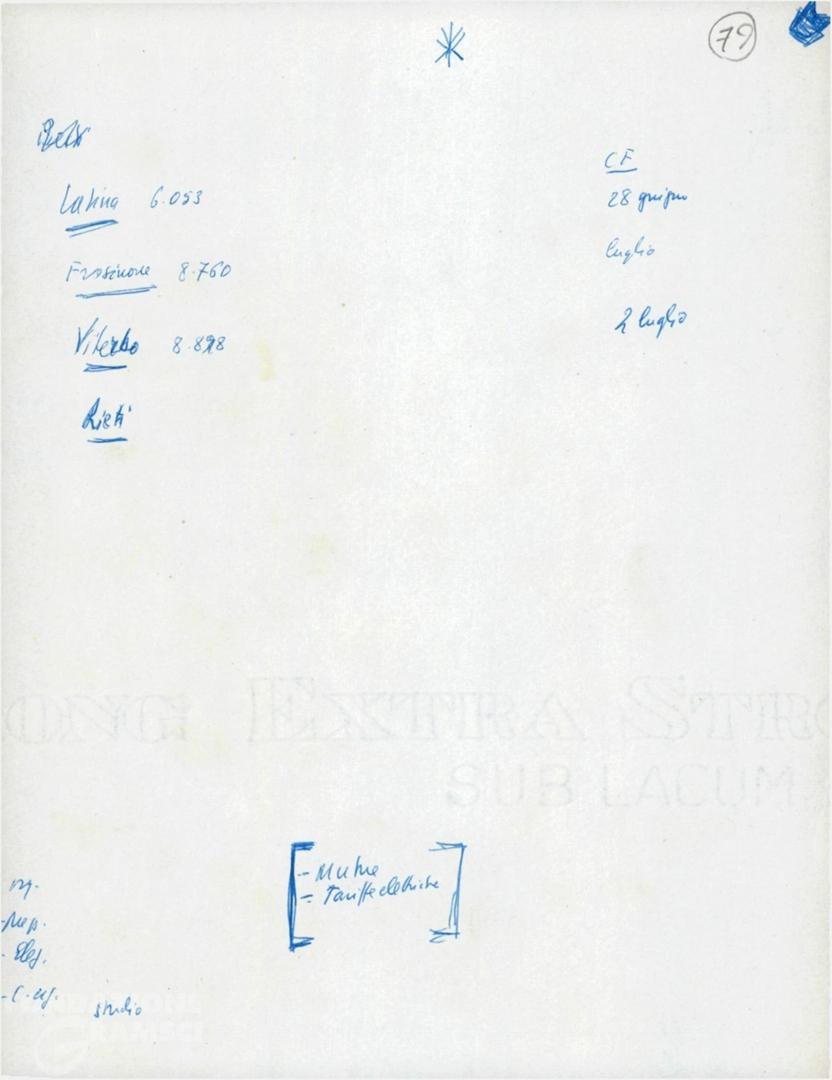 79
Latina 6.053
Frosinone 8.760
Viterbo 8.898
Rieti
CF
28 giugno
luglio
2 luglio
ONG EXTRA STRO
SUB LACUM
- Mutue
- Tariffe elettriche
studio